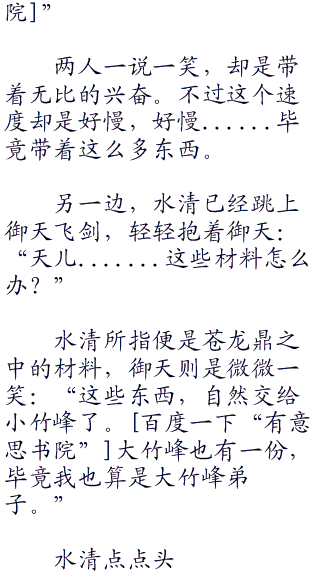 院]”
两人一说一笑，却是带
着无比的兴奋。不过这个速
度却是好慢，好慢......毕
竟带着这么多东西。
另一边，水清已经跳上
御天飞剑，轻轻抱着御天：
“天儿.......这些材料怎么
办？”
水清所指便是苍龙鼎之
中的材料，御天则是微微一
笑：“这些东西，自然交给
小竹峰了。[百度一下“有意
思书院”]大竹峰也有一份，
毕竟我也算是大竹峰弟
子。”
水清点点头